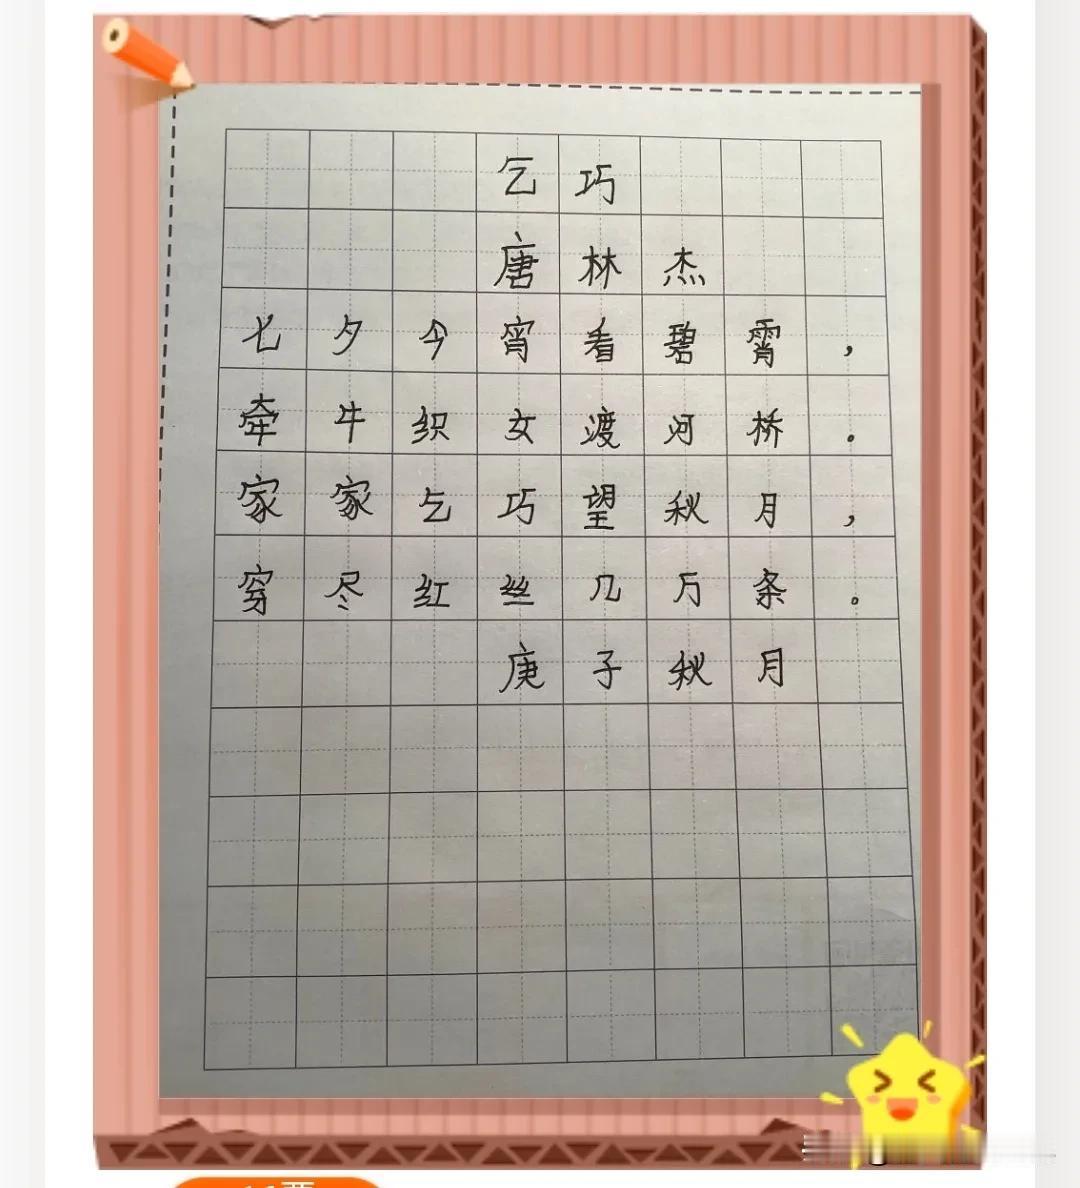 乞巧
唐林杰
七夕今宵看碧霄，
牵牛织女渡河桥。
家家乞巧望秋月，
穿尽红丝几万条。
庚子秋月